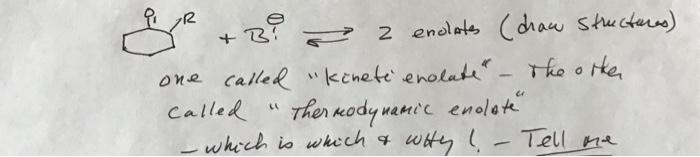 O R
+ B:⊖ ⇌ 2 enolates (draw structures)
one called "kinetic enolate" - The other
called "Thermodynamic enolate"
- which is which & why ! - Tell me